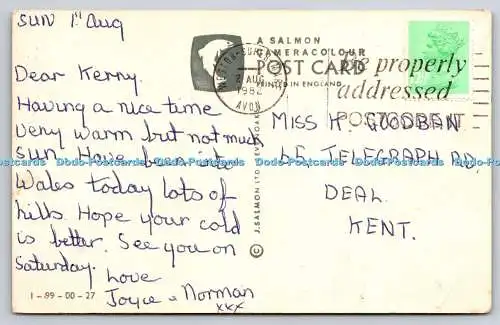 SUN 1st Aug
Dear Kerry.
Having a nice time
very warm but not much
sun. Have been into
Wales today lots of
hills. Hope your cold
is better. See you on
Saturday.
Love
Joyce & Norman
xxx
1-99-00-27
A SALMON
CAMERACOLOUR
POST CARD
PRINTED IN ENGLAND
© J. SALMON LTD., SEVENOAKS
AUG
1982
AVON
Be properly
addressed
POSTCODE IT
MISS K. GOODBAN
45 TELEGRAPH RD,
DEAL.
KENT.
Dodo-Postcards Dodo-Postcards Dodo-Postcards Dodo-Postcards Dodo-Postcards